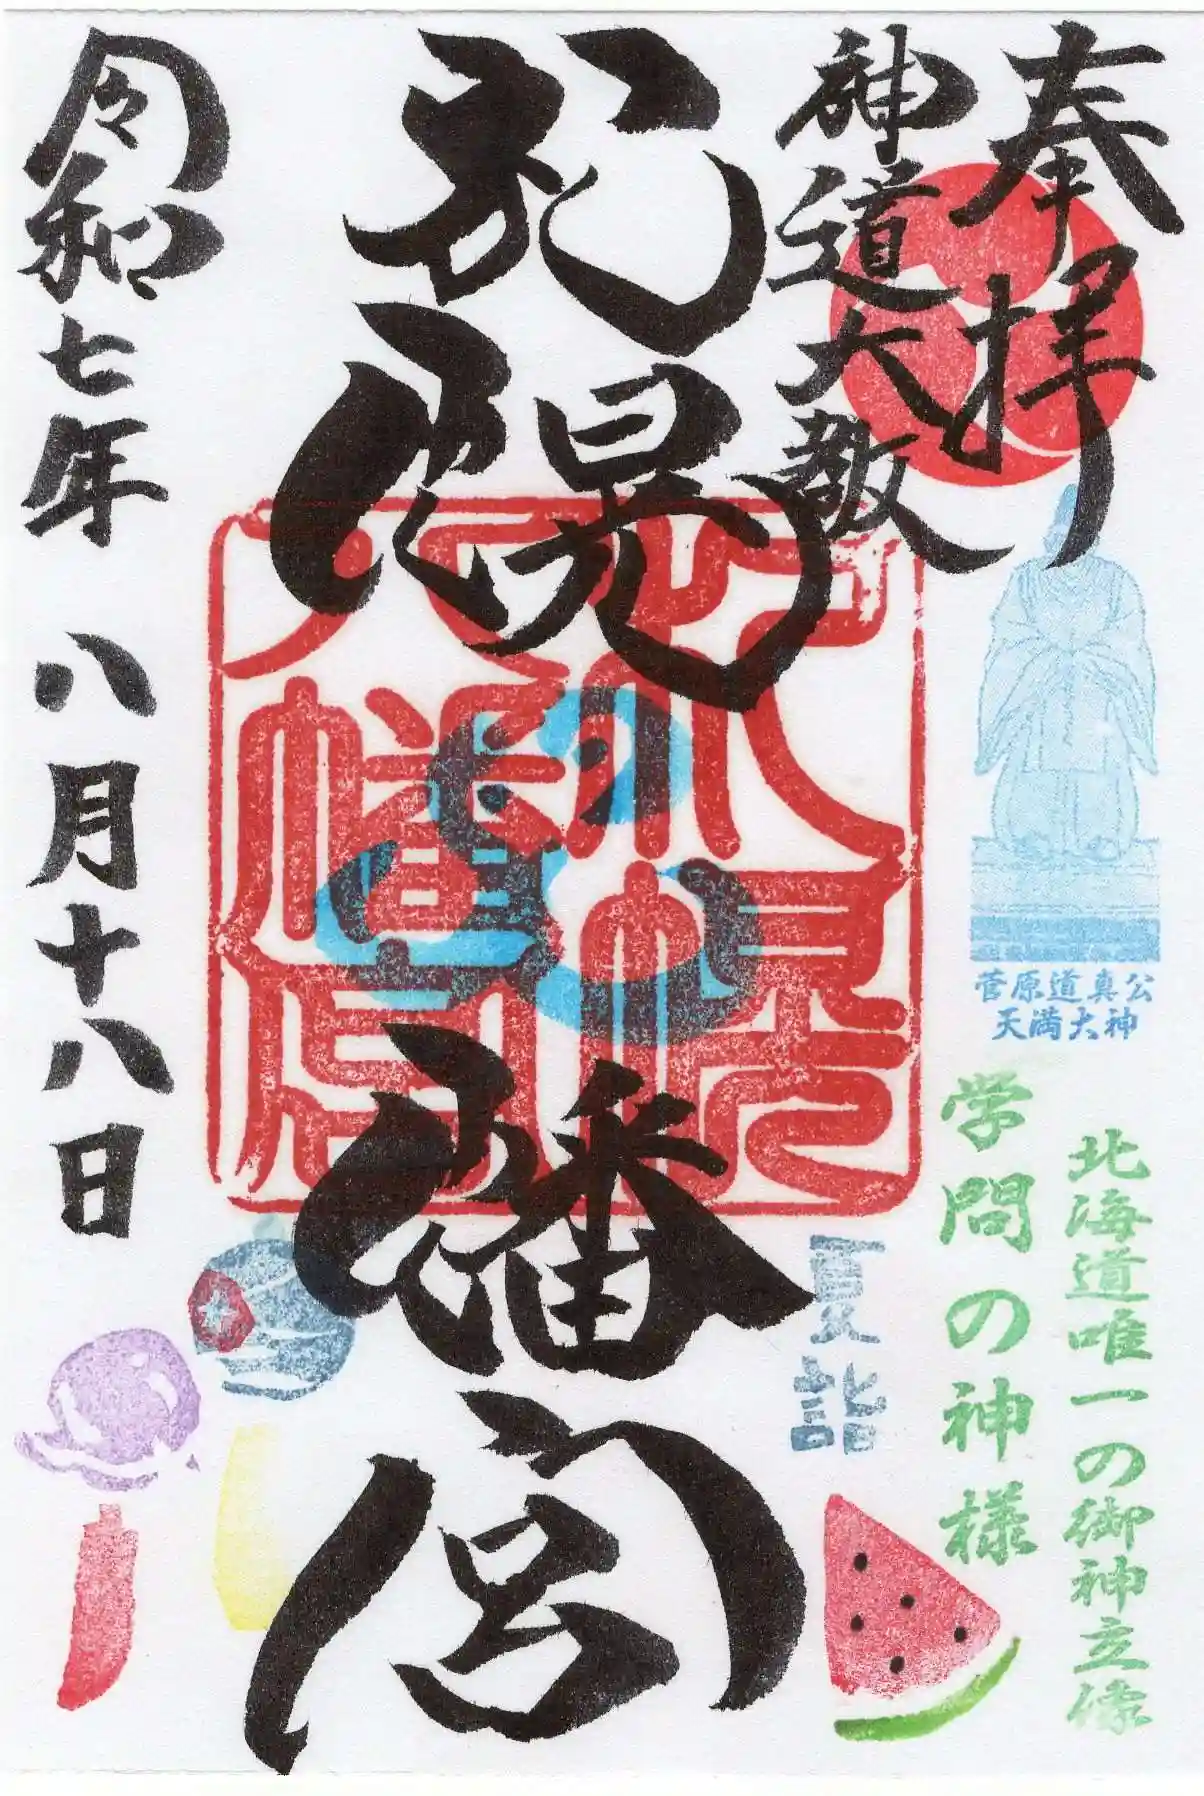 奉拝
神道大教
菅原道真公
天満大神
北海道唯一の御神立像
学問の神様
夏詣
札幌八幡宮
札幌八幡宮
令和七年 八月十八日